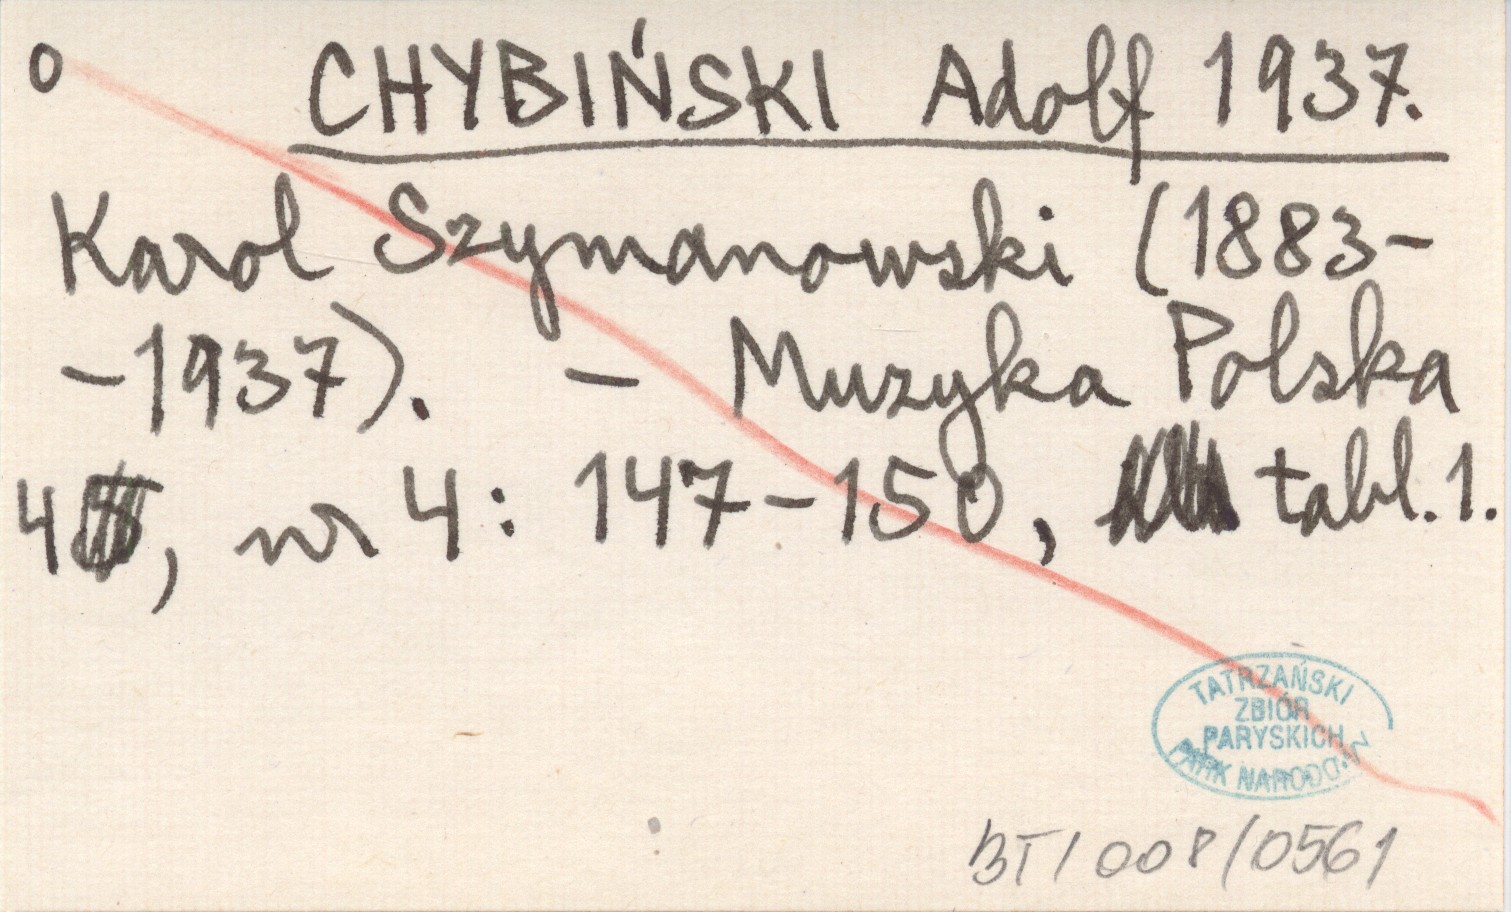 o CHYBIŃSKI Adolf 1937.
Karol Szymanowski (1883-
-1937). - Muzyka Polska
4, nr 4: 147-150, tabl. 1.
TATRZAŃSKI
ZBIÓR
PARYSKICH
PARK NARODO
BT/008/0561